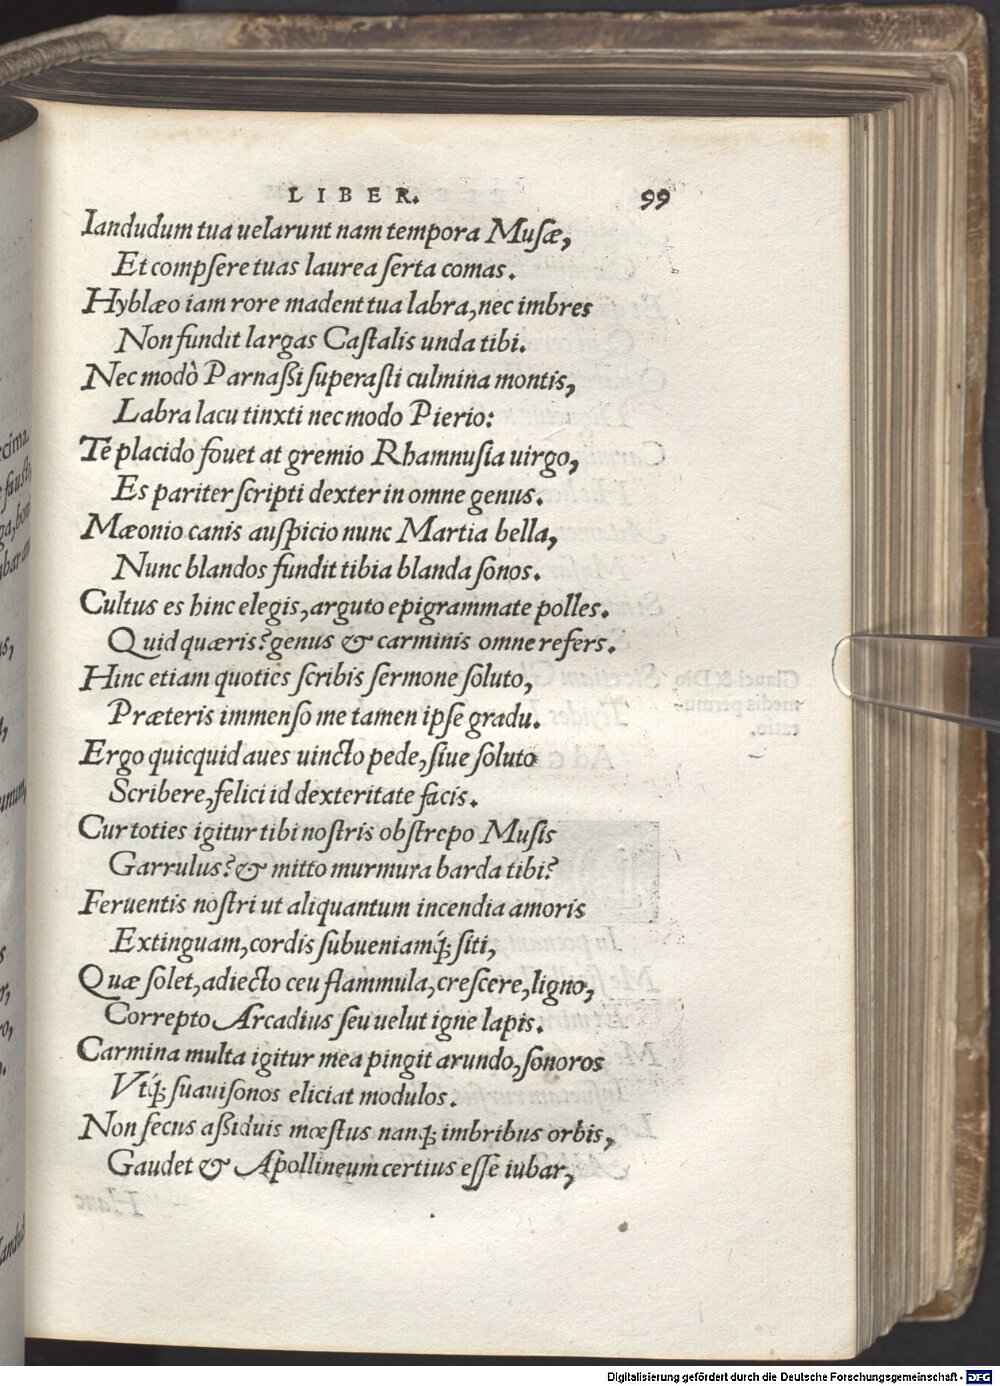 LIBER. 99
Iandudum tua uelarunt nam tempora Musæ,
Et compsere tuas laurea serta comas.
Hyblæo iam rore madent tua labra, nec imbres
Non fundit largas Castalis unda tibi.
Nec modò Parnaßi superasti culmina montis,
Labra lacu tinxti nec modo Pierio:
Te placido fouet at gremio Rhamnusia uirgo,
Es pariter scripti dexter in omne genus.
Mæonio canis auspicio nunc Martia bella,
Nunc blandos fundit tibia blanda sonos.
Cultus es hinc elegis, arguto epigrammate polles.
Quid quæris? genus & carminis omne refers.
Hinc etiam quoties scribis sermone soluto,
Præteris immenso me tamen ipse gradu.
Ergo quicquid aues uincto pede, siue soluto
Scribere, felici id dexteritate facis.
Cur toties igitur tibi nostris obstrepo Musis
Garrulus? & mitto murmura barda tibi?
Feruentis nostri ut aliquantum incendia amoris
Extinguam, cordis subueniamq́; siti,
Quæ solet, adiecto ceu flammula, crescere, ligno,
Correpto Arcadius seu uelut igne lapis.
Carmina multa igitur mea pingit arundo, sonoros
Vtq́; suauisonos eliciat modulos.
Non secus aßiduis mœstus nanq́; imbribus orbis,
Gaudet & Apollineum certius esse iubar,
Digitalisierung gefördert durch die Deutsche Forschungsgemeinschaft - DFG